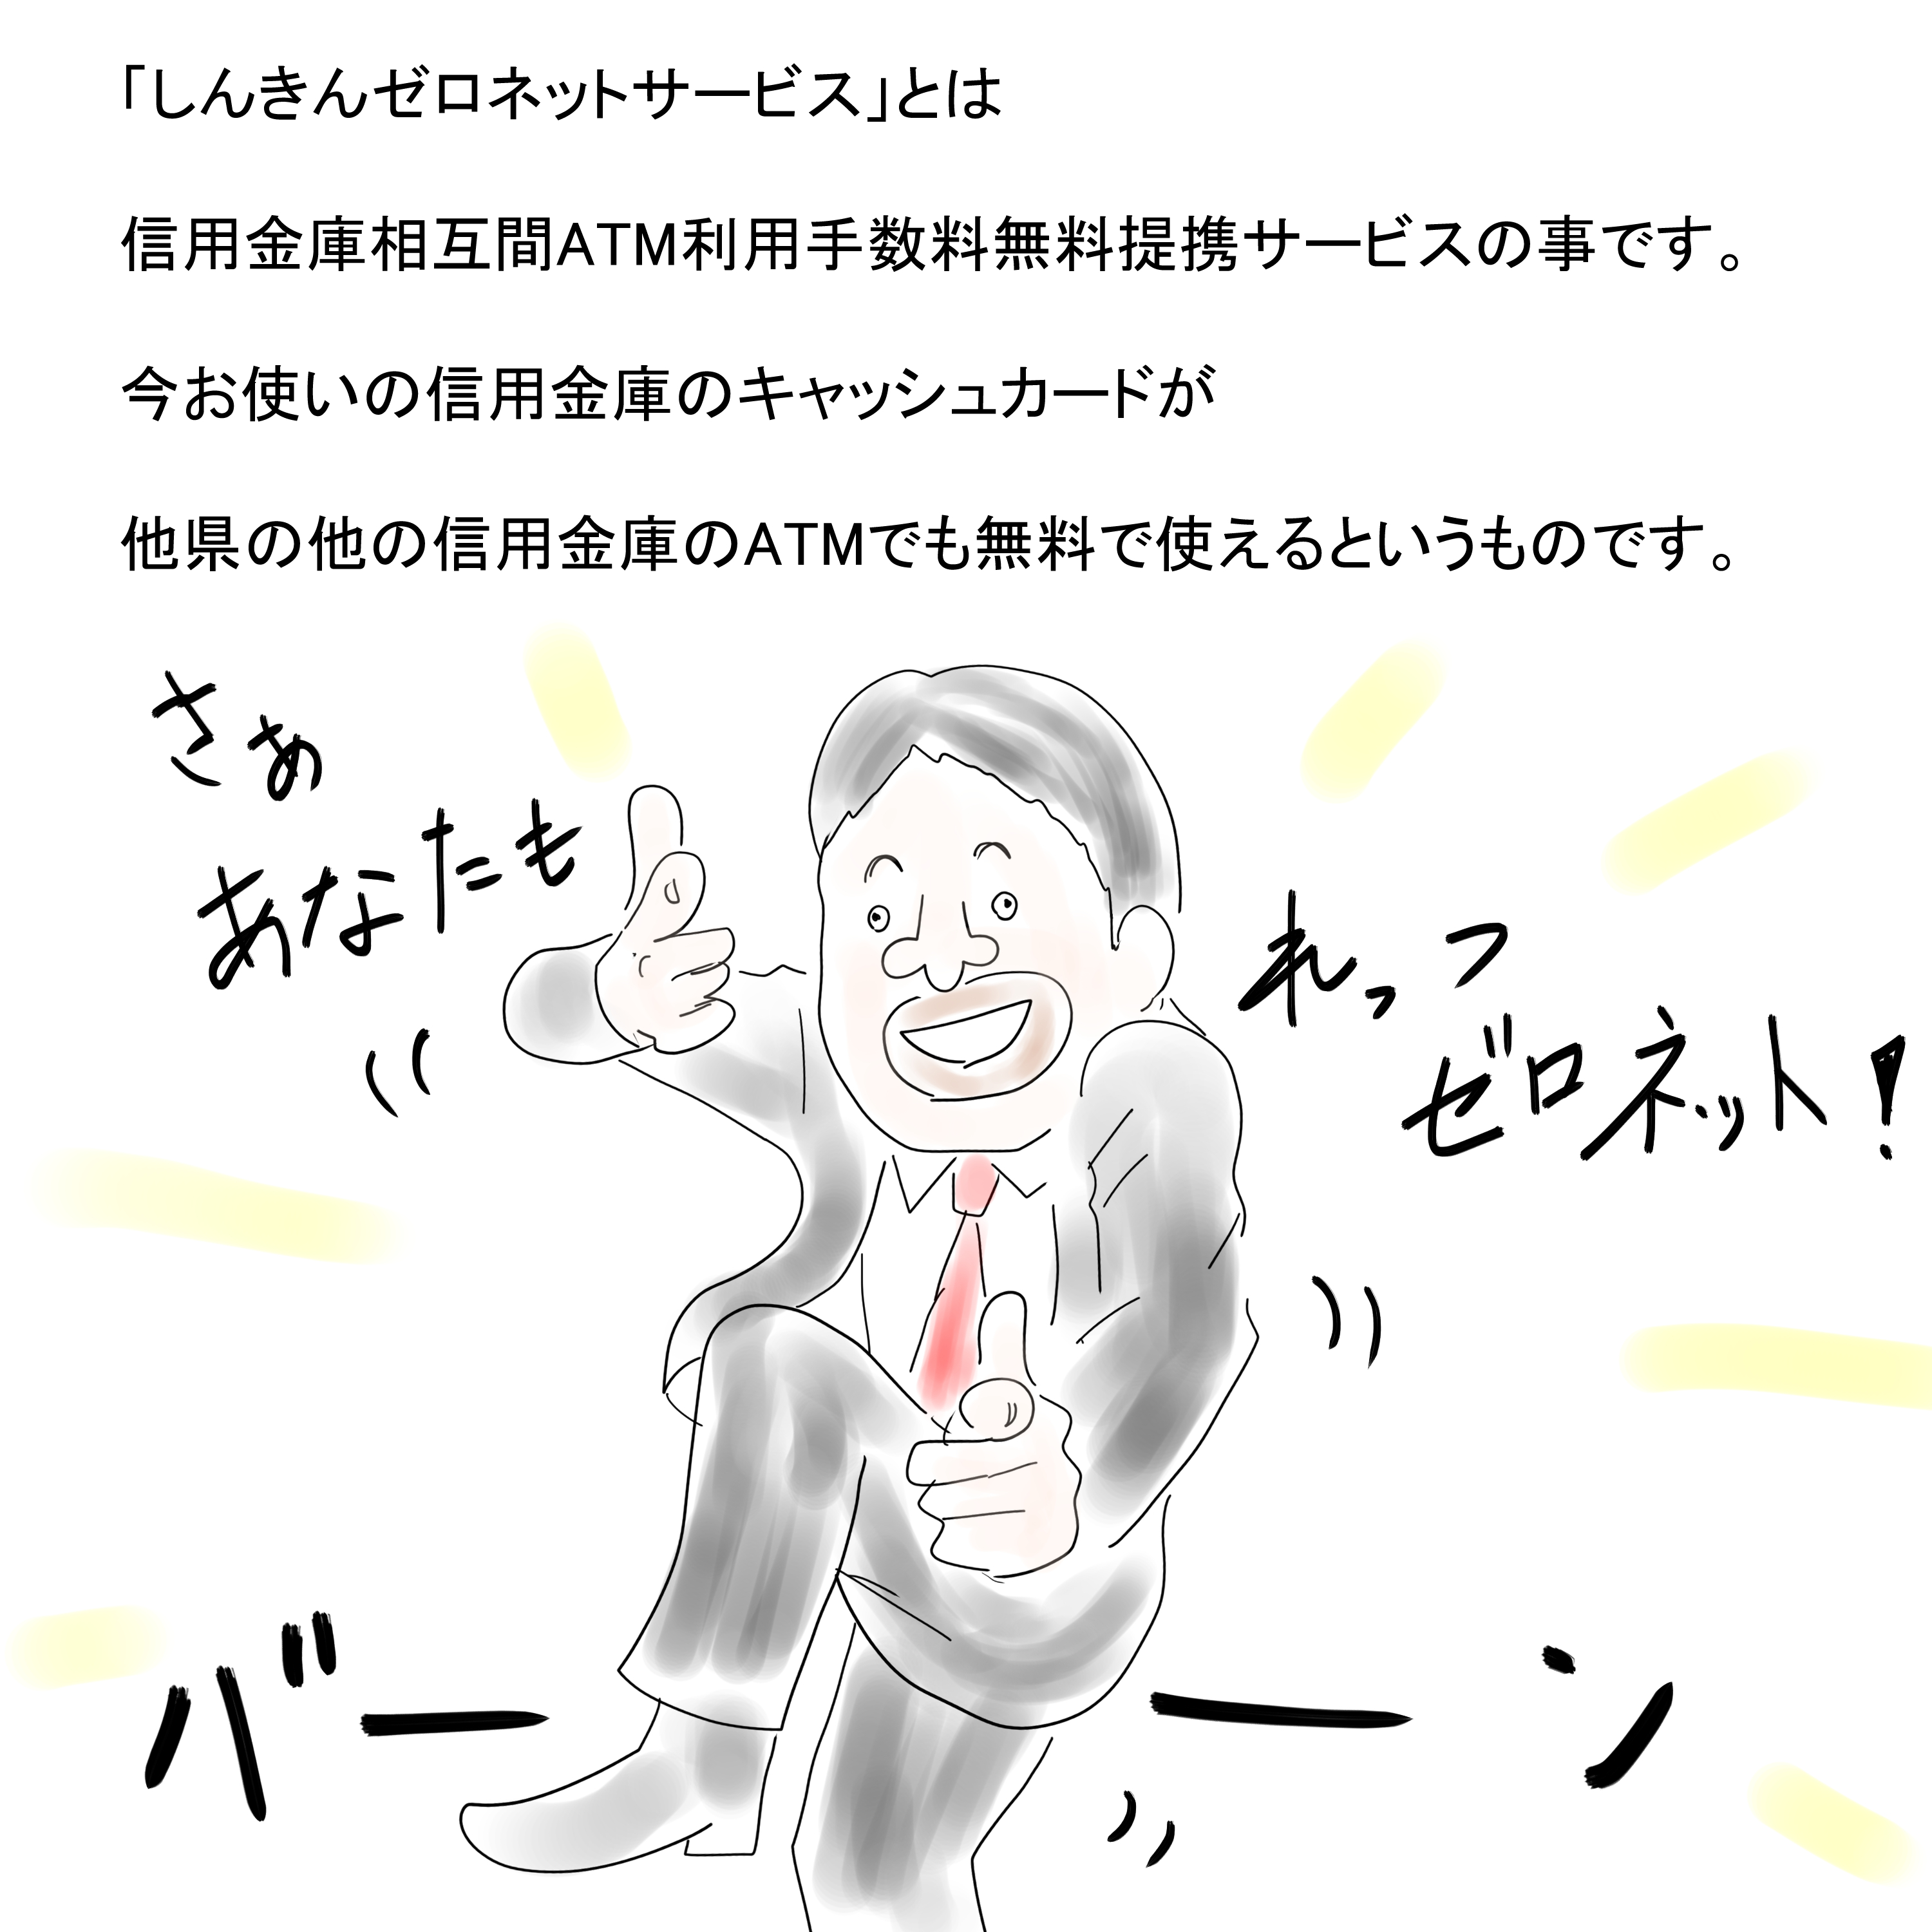 「しんきんゼロネットサービス」とは
信用金庫相互間ATM利用手数料無料提携サービスの事です。
今お使いの信用金庫のキャッシュカードが
他県の他の信用金庫のATMでも無料で使えるというものです。
さぁ
あなたも
れっつ
ゼロネット!
バーーン